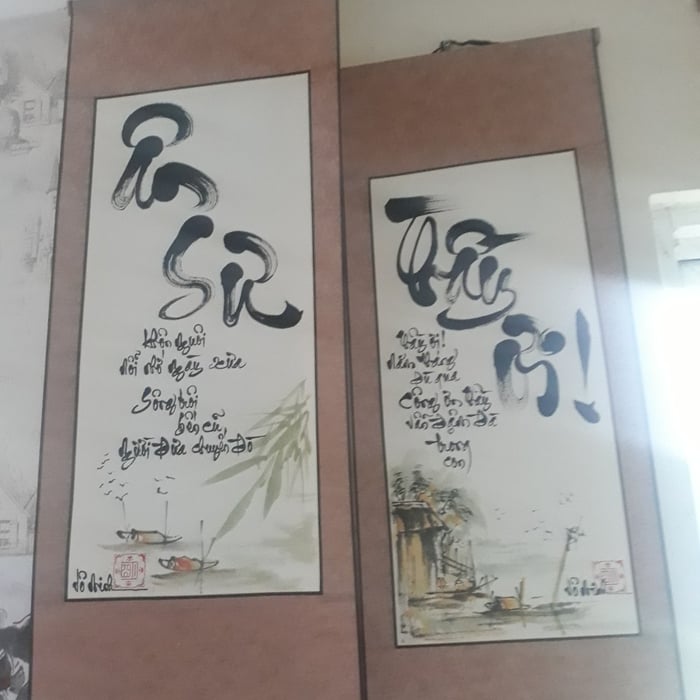 Ân
Sư
Khôn nguôi
nỗi nhớ ngày xưa
Sông trôi
bến cũ,
người đưa chuyến đò
Thầy
ơi!
Thầy ơi!
năm tháng
đã qua
Công ơn thầy
vẫn đậm đà
trong
con